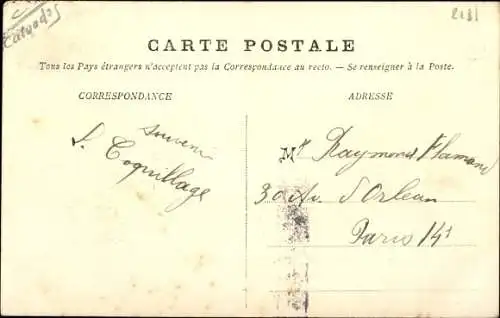 Calvados
2131
CARTE POSTALE
Tous les Pays étrangers n'acceptent pas la Correspondance au recto. — Se renseigner à la Poste.
CORRESPONDANCE
ADRESSE
Souvenir
Coquillage
Mr Raymond Flamand
30 Av. d'Orlean
Paris 14s